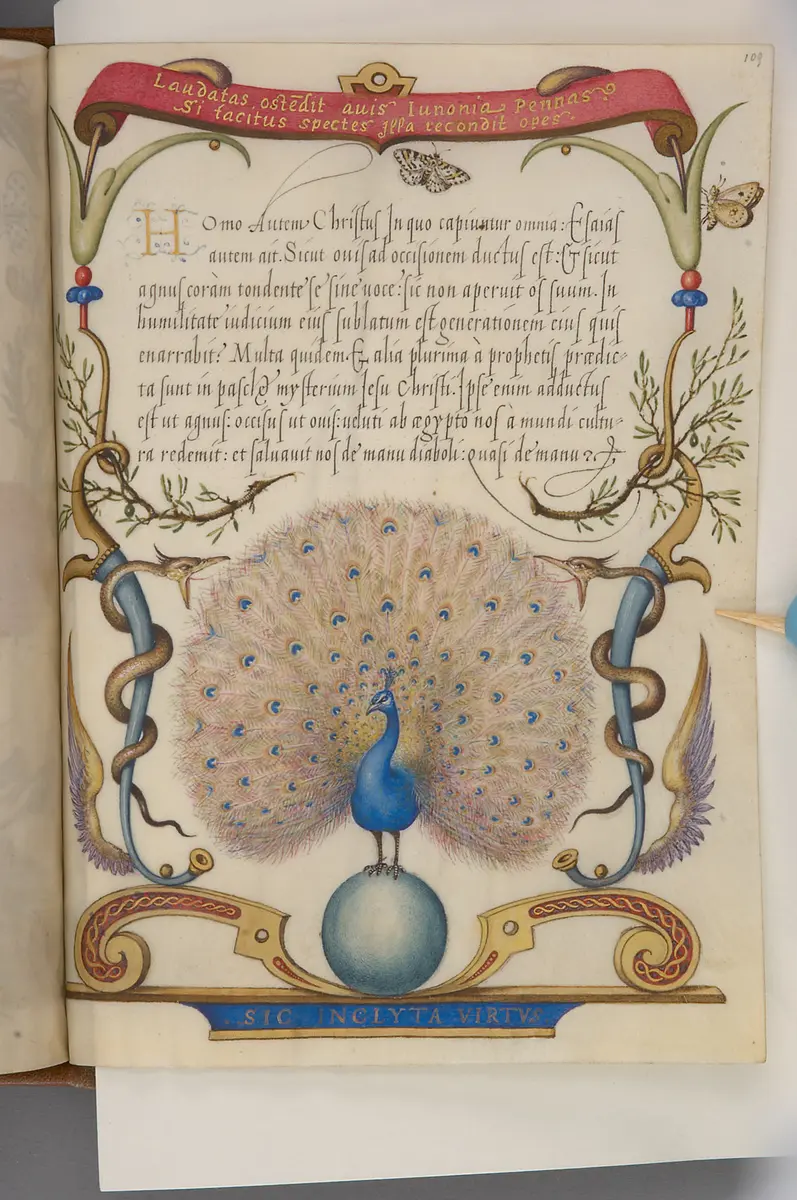 109
Laudatas ostēdit avis Iunonia Pennas
Si tacitus spectes Illa recondit opes.
HOmo Autem Christus In quo capiuntur omnia: Esaias
autem ait. Sicut ouis ad occisionem ductus est: Et sicut
agnus coràm tondente se sine uoce: sic non aperuit os suum. In
humilitate iudicium eius sublatum est generationem eius quis
enarrabit? Multa quidem Et alia plurima à prophetis prædic-
ta sunt in paschæ mysterium Jesu Christi. Ipse enim adductus
est ut agnus: occisus ut ouis: ueluti ab ægypto nos à mundi cultu-
ra redemit: et saluauit nos de manu diaboli: quasi de manu
SIC INCLYTA VIRTVS